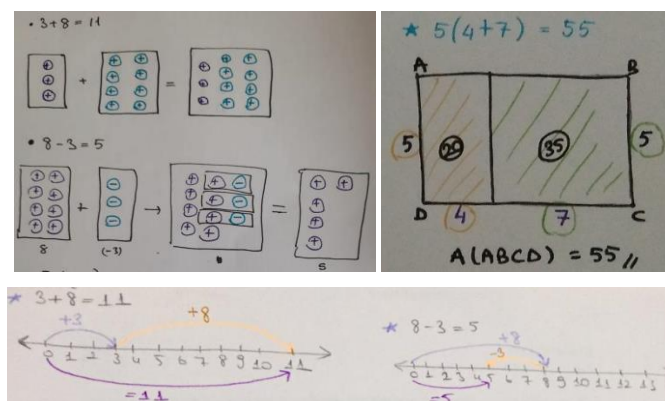 • 3+8 = 11
+ =
• 8-3 = 5
+ → =
8 (-3) 5
★ 5(4+7) = 55
A B
5 20 35 5
D 4 7 C
A(ABCD) = 55 //
★ 3+8 = 11
+3 +8
0 1 2 3 4 5 6 7 8 9 10 11
=11
★ 8-3 = 5
+8
-3
0 1 2 3 4 5 6 7 8 9 10 11 12 13
=5